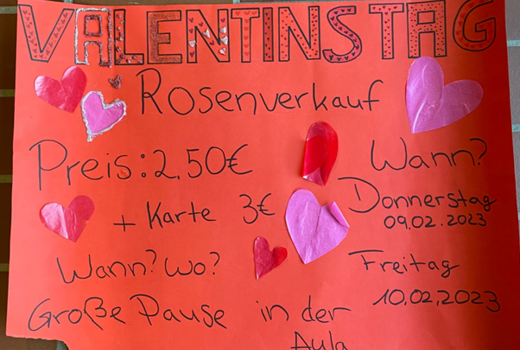 VALENTINSTAG
Rosenverkauf
Preis: 2,50€
+ Karte 3€
Wann? Wo?
Große Pause in der
Aula
Wann?
Donnerstag
09.02.2023
Freitag
10.02.2023